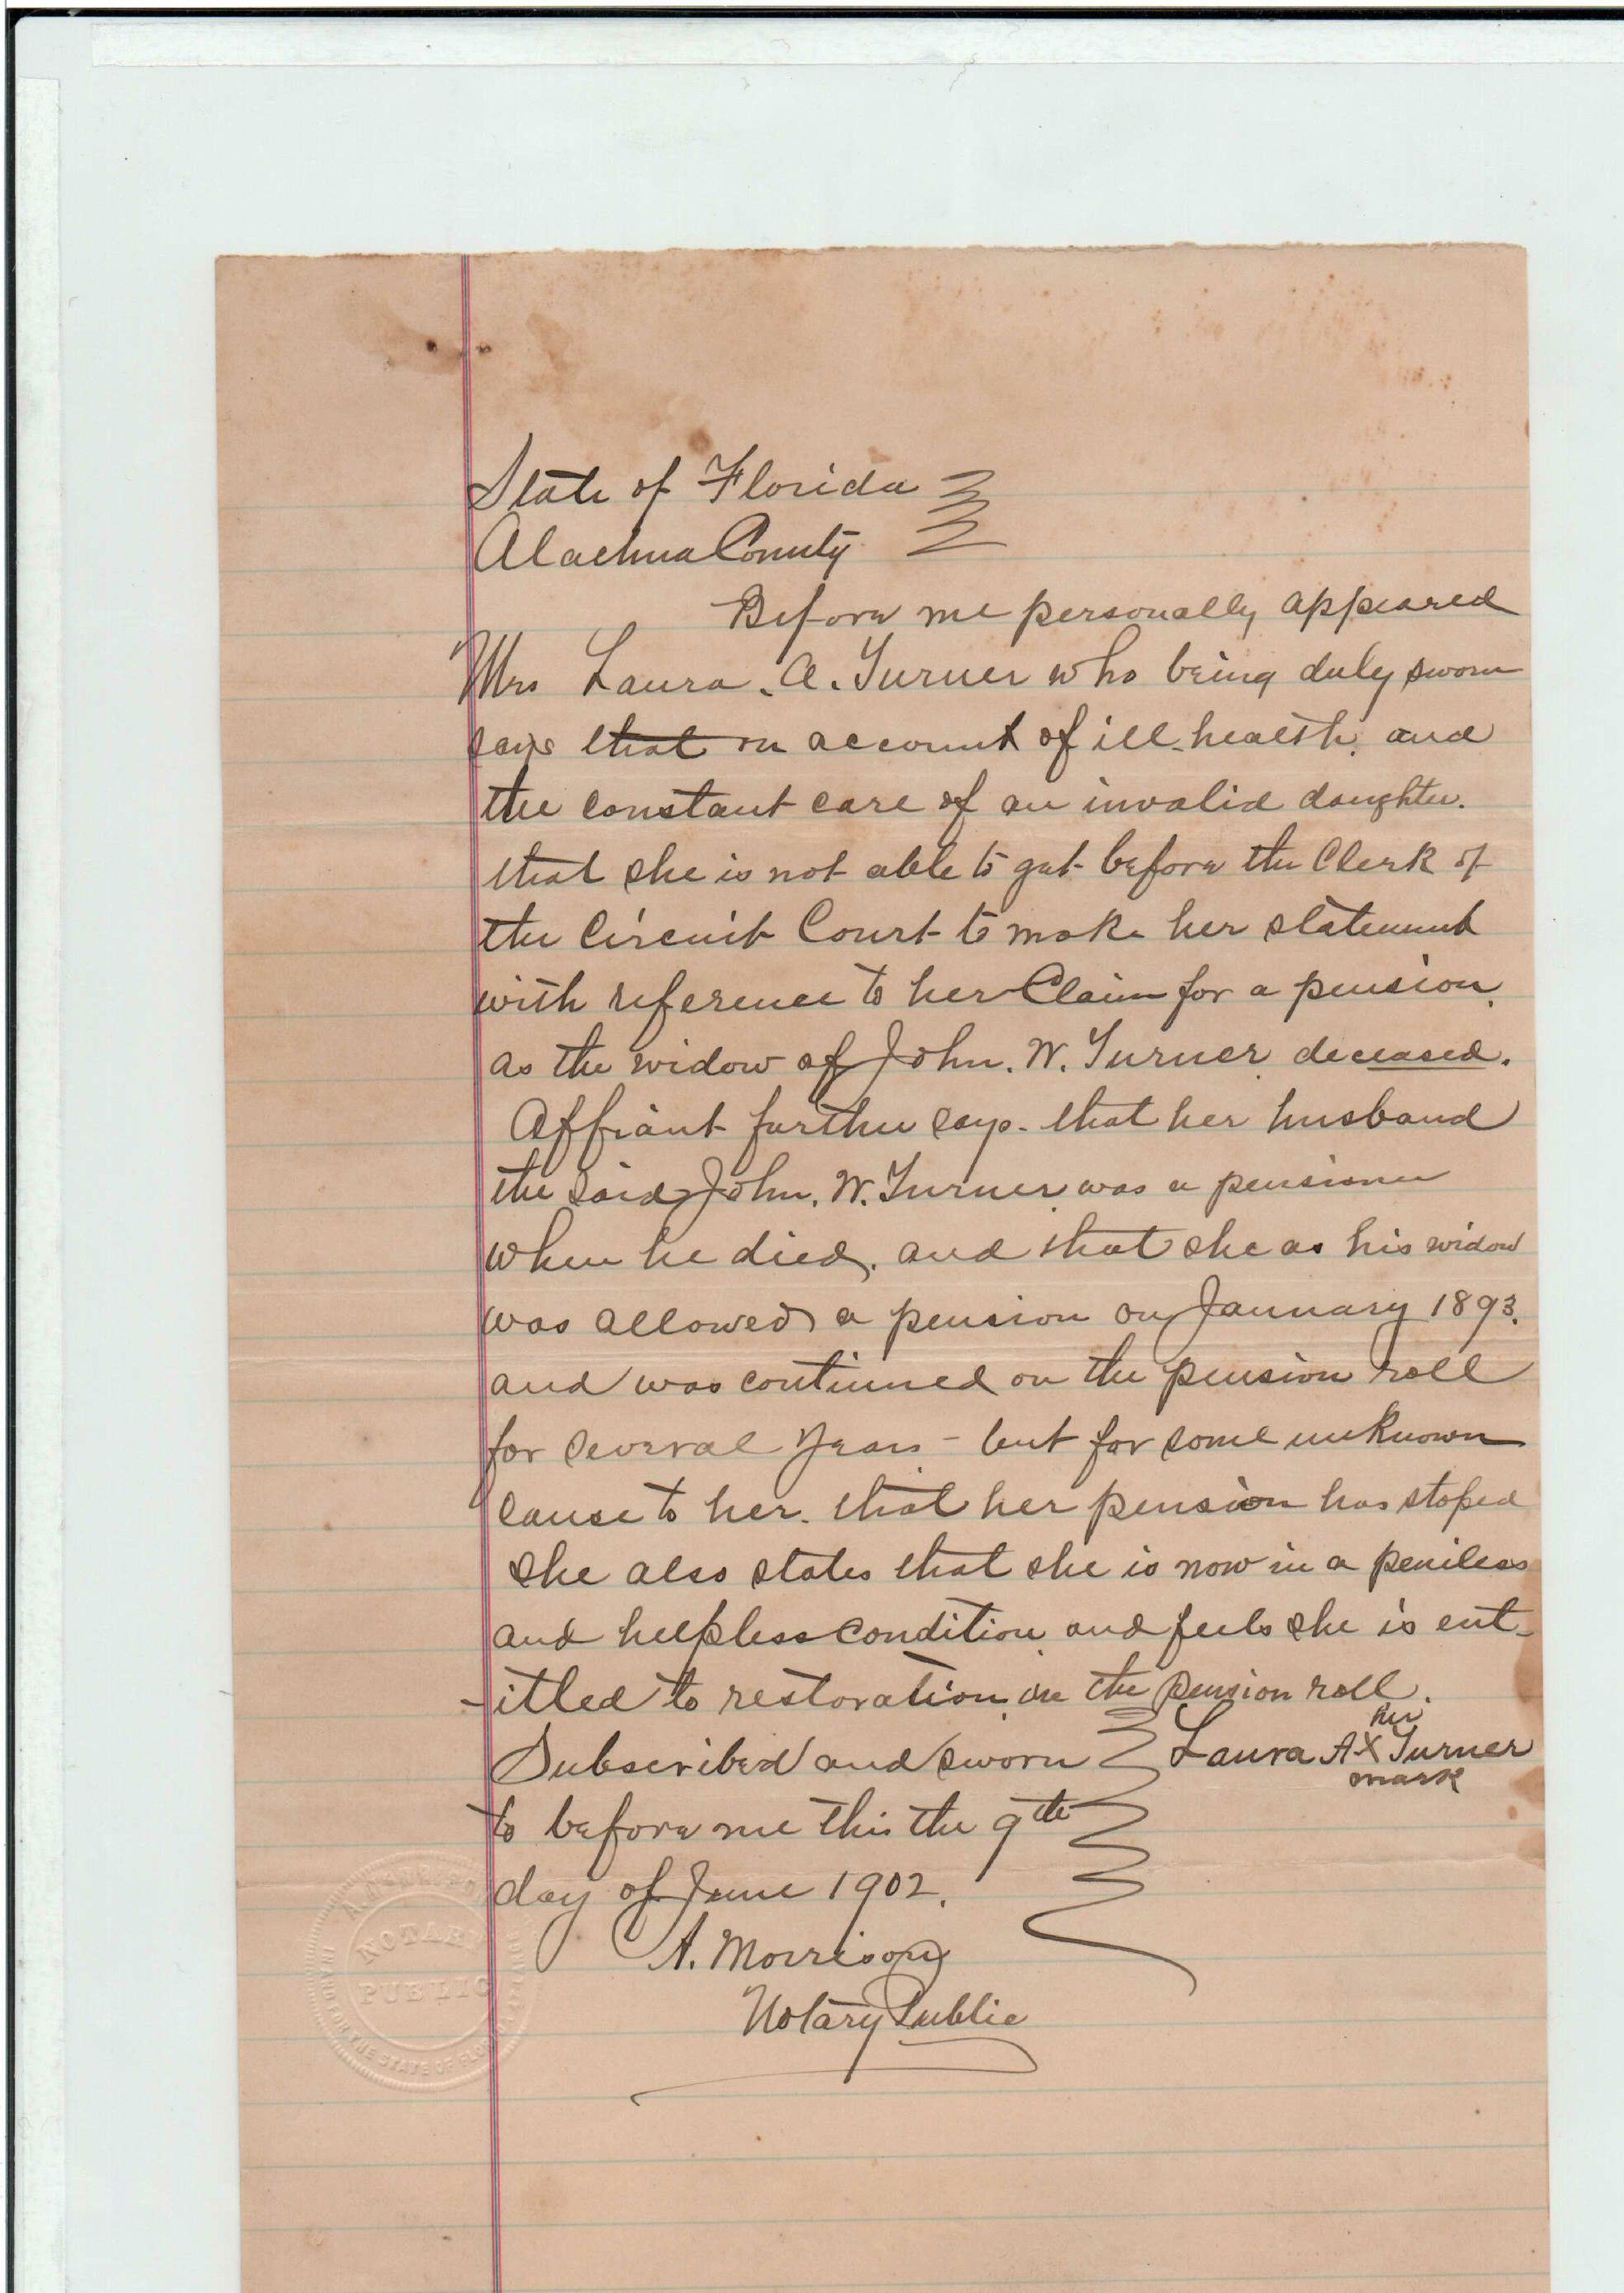 State of Florida
Alachua County
Before me personally appeared
Mrs Laura. A. Turner who being duly sworn
says that on account of ill-health. and
the constant care of an invalid daughter.
that she is not able to get before the Clerk of
the Circuit Court to make her statement
with reference to her Claim for a pension.
as the widow of John. W. Turner deceased.
Affiant further says. that her husband
the said John. W. Turner was a pensioner
when he died. and that she as his widow
was allowed a pension on January 1893.
and was continued on the pension roll
for several years - but for some unknown
cause to her. that her pension has stoped
she also states that she is now in a peniless
and helpless condition and feels she is ent-
-itled to restoration on the pension roll.
her
Subscribed and sworn Laura A X Turner
mark
to before me this the 9th
day of June 1902.
A. Morrison
Notary Public
NOTARY
PUBLIC
THE STATE OF